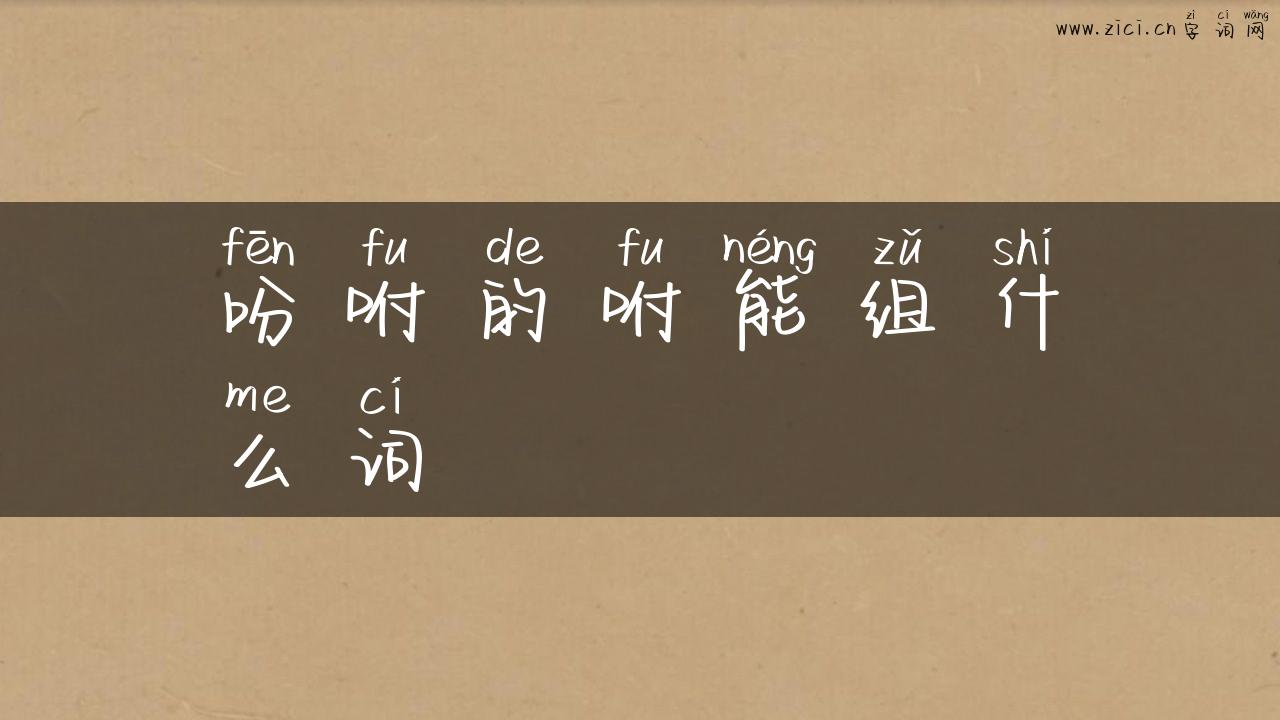 zì cí wǎng
www.zici.cn 字词网
fēn fu de fu néng zǔ shí
吩咐的咐能组什
me cí
么词